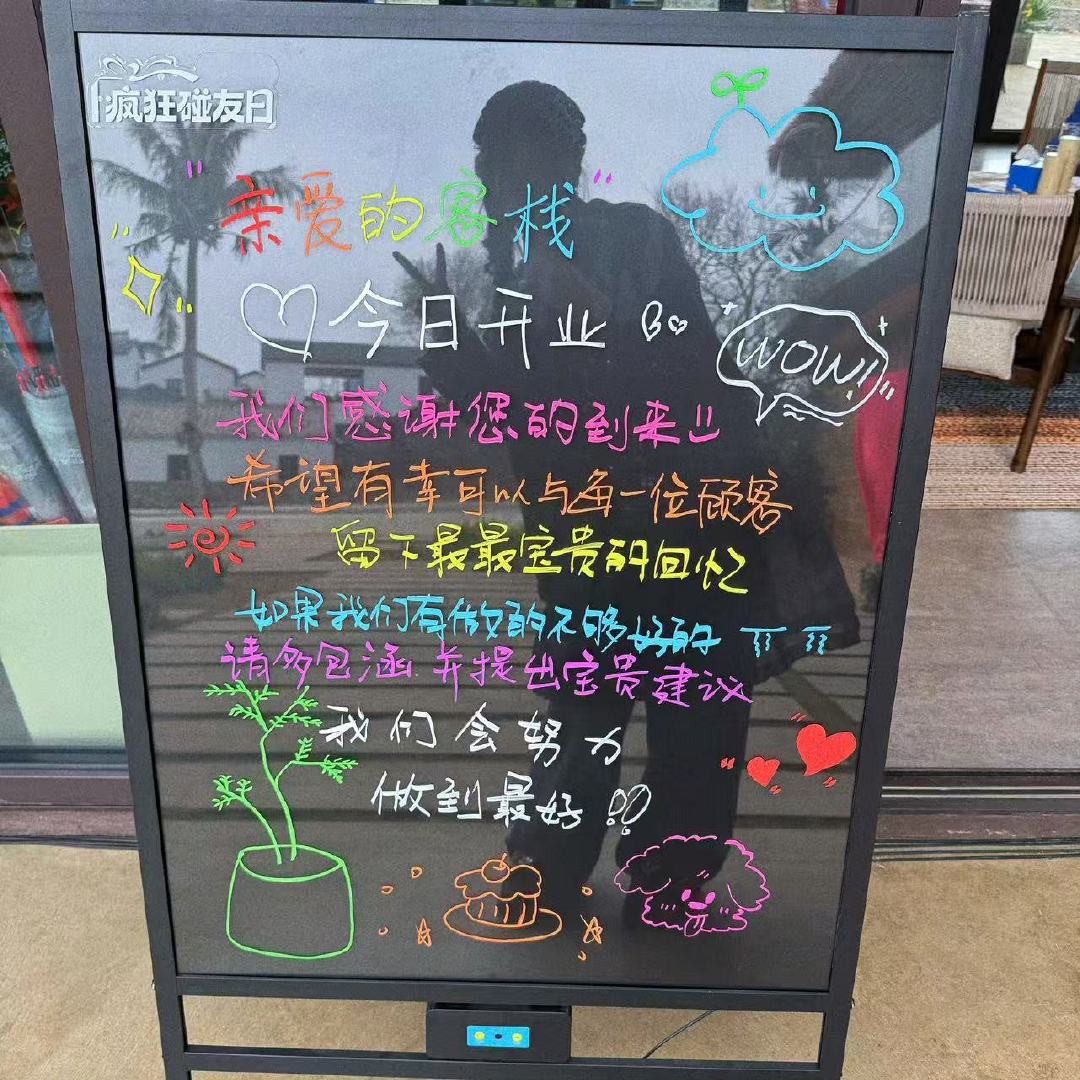 疯狂碰友日
"亲爱的客栈"
今日开业
WOW!
我们感谢您的到来!!
希望有幸可以与每一位顾客
留下最最宝贵的回忆
如果我们有做的不够好的
请多包涵.并提出宝贵建议
我们会努力
做到最好!!